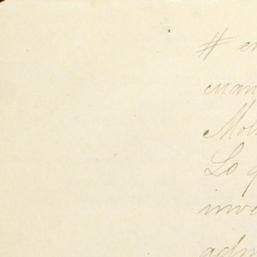 # e
cuan
Mo
Lo q
inv
adm